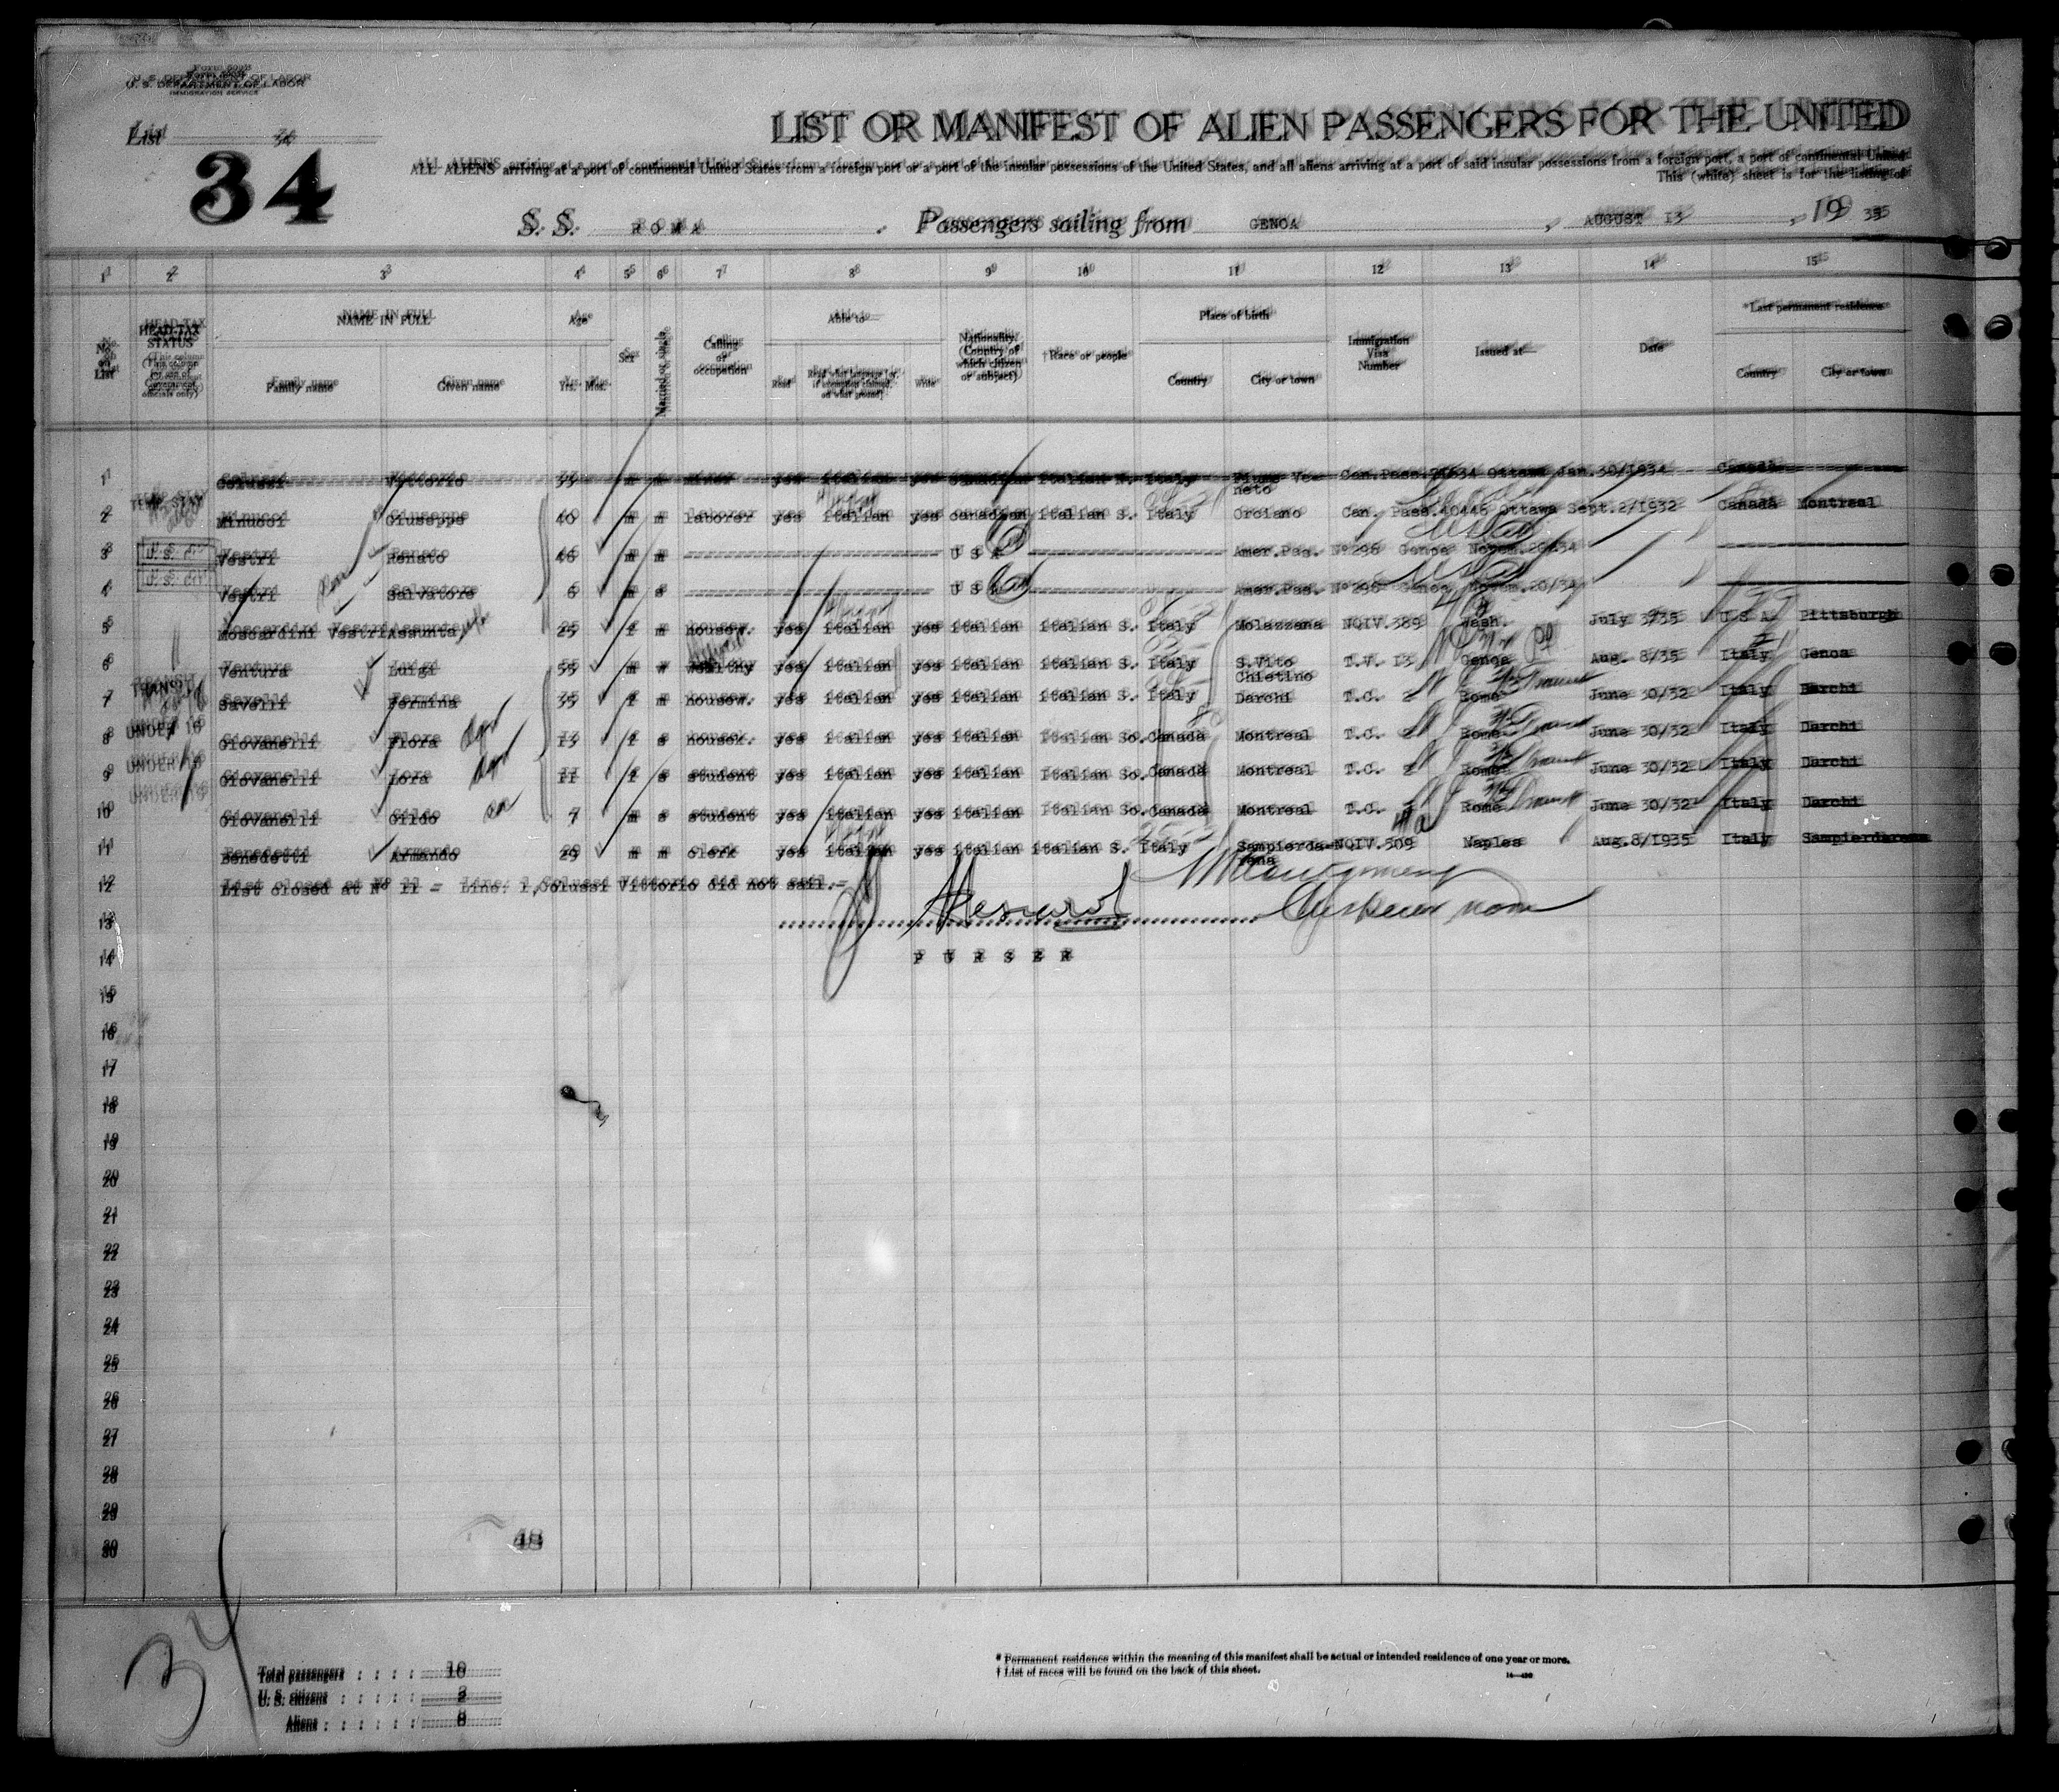 Form 500B
U. S. DEPARTMENT OF LABOR
IMMIGRATION SERVICE
List 34
34
LIST OR MANIFEST OF ALIEN PASSENGERS FOR THE UNITED
ALL ALIENS arriving at a port of continental United States from a foreign port or a port of the insular possessions of the United States, and all aliens arriving at a port of said insular possessions from a foreign port, a port of continental United
This (white) sheet is for the listing of
S. S. ROMA . Passengers sailing from GENOA , AUGUST 13 , 19 35
1 2 3 4 5 6 7 8 9 10 11 12 13 14 15
No. on List
HEAD-TAX STATUS (This column for use of Government officials only)
NAME IN FULL
Family name Given name
Age
Yrs. Mos.
Sex
Married or single
Calling or occupation
Able to—
Read
Read what language [or, if exemption claimed, on what ground]
Write
Nationality. (Country of which citizen or subject)
†Race or people
Place of birth
Country City or town
Immigration Visa Number
Issued at—
Date
*Last permanent residence
Country City or town
1 Colussi Vittorio 33 m m miner yes italian yes canadian italian N. Italy Fiume Veneto Can.Pass. Ottawa Jan.30/1934 Canada
2 Minucci Giuseppe 40 m m laborer yes italian yes canadian italian S. Italy Orciano Can. Pass.40446 Ottawa Sept.2/1932 Canada Montreal
3 U.S. cit Vestri Renato 46 m m U S A Amer.Pas. Nº298 Genoa Novem.20/34
4 U.S. cit Vestri Salvatore son 6 m s U S A Amer.Pas. Nº298 Genoa Novem.20/34
5 Moscardini Vestri Assunta wife 25 f m housew. yes italian yes italian italian S. Italy Molazzana NQIV.389 Wash. July 3/35 U S A Pittsburgh
6 Ventura Luigi 55 m w wealthy yes italian yes italian italian S. Italy S.Vito Chietino T.V. 13 Genoa Aug. 8/35 Italy Genoa
7 TRANSIT Savelli Fermina 35 f m housew. yes italian yes italian italian S. Italy Darchi T.C. 2 Rome June 30/32 Italy Darchi
8 UNDER 16 Giovanelli Flora 13 f s housek. yes italian yes italian Italian So. Canada Montreal T.C. 2 Rome June 30/32 Italy Darchi
9 UNDER 16 Giovanelli Lora 11 f s student yes italian yes italian Italian So. Canada Montreal T.C. 2 Rome June 30/32 Italy Darchi
10 UNDER 16 Giovanelli Gildo 7 m s student yes italian yes italian Italian So. Canada Montreal T.C. 2 Rome June 30/32 Italy Darchi
11 Benedetti Armando 29 m m clerk yes italian yes italian italian S. Italy Sampierdarena NQIV.509 Naples Aug.8/1935 Italy Sampierdarena
12 List closed at Nº 11 - Line: 1,Colussi Vittorio did not sail.-
13
14 PURSER
15
16
17
18
19
20
21
22
23
24
25
26
27
28
29
30
48
34
Total passengers : : : : 10
U. S. citizens : : : : : 2
Aliens : : : : : : 8
* Permanent residence within the meaning of this manifest shall be actual or intended residence of one year or more.
† List of races will be found on the back of this sheet.